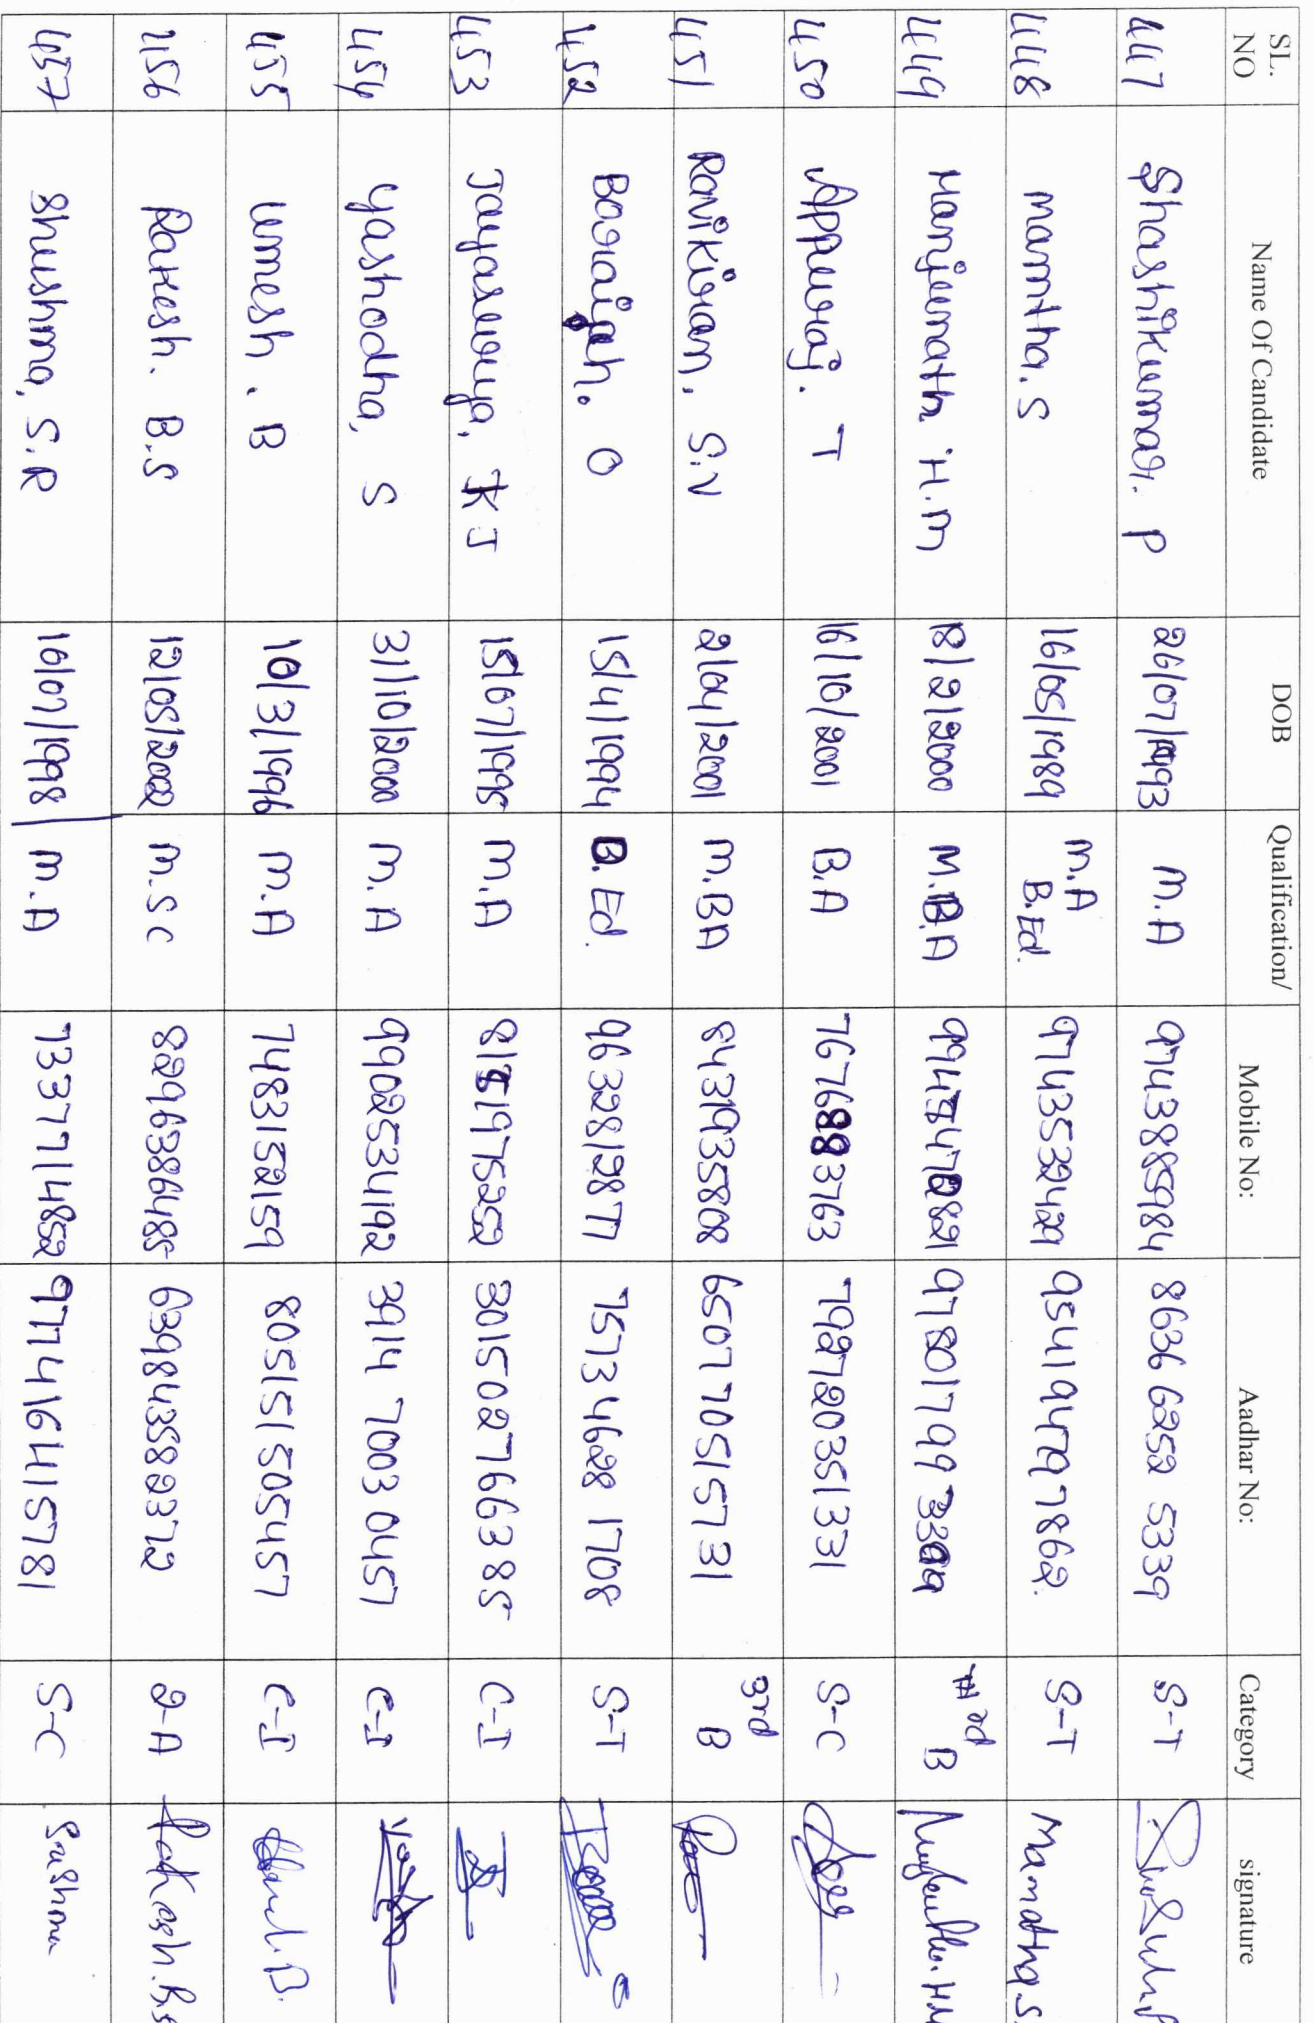 SL. NO Name Of Candidate DOB Qualification/ Mobile No: Aadhar No: Category signature
447 Shashikumar. P 26/07/1993 M.A 9743885984 8636 6252 5339 S-T
448 mamtha. S 16/05/1989 M.A B.Ed. 9743532429 954194797862. S-T Mamatha.S.
449 Manjunath H.M 18/2/2000 M.B.A 978017993399 B
450 Appuraj. T 16/10/2001 B.A 7676883763 792720351331 S-C
451 Ravikiran. S.V 2/04/2001 M.BA 8431935808 650770515731 3rd B
452 Boraiah. O 15/4/1994 B.Ed. 9632812877 7573 4628 1708 S-T
453 Jayasurya. K J 15/07/1995 M.A 8151975252 301502766385 C-I
454 Yashodha, S 31/10/2000 M.A 9902534192 3914 7003 0457 C-I
455 Umesh. B 10/3/1996 M.A 7483152159 805151505457 C-I
456 Rakesh. B.S 12/05/2002 M.SC 8296386485 639843582372 2-A Rakesh.B.S
457 Shushma, S.R 16/07/1998 M.A 7337714852 977416415781 S-C Sushma